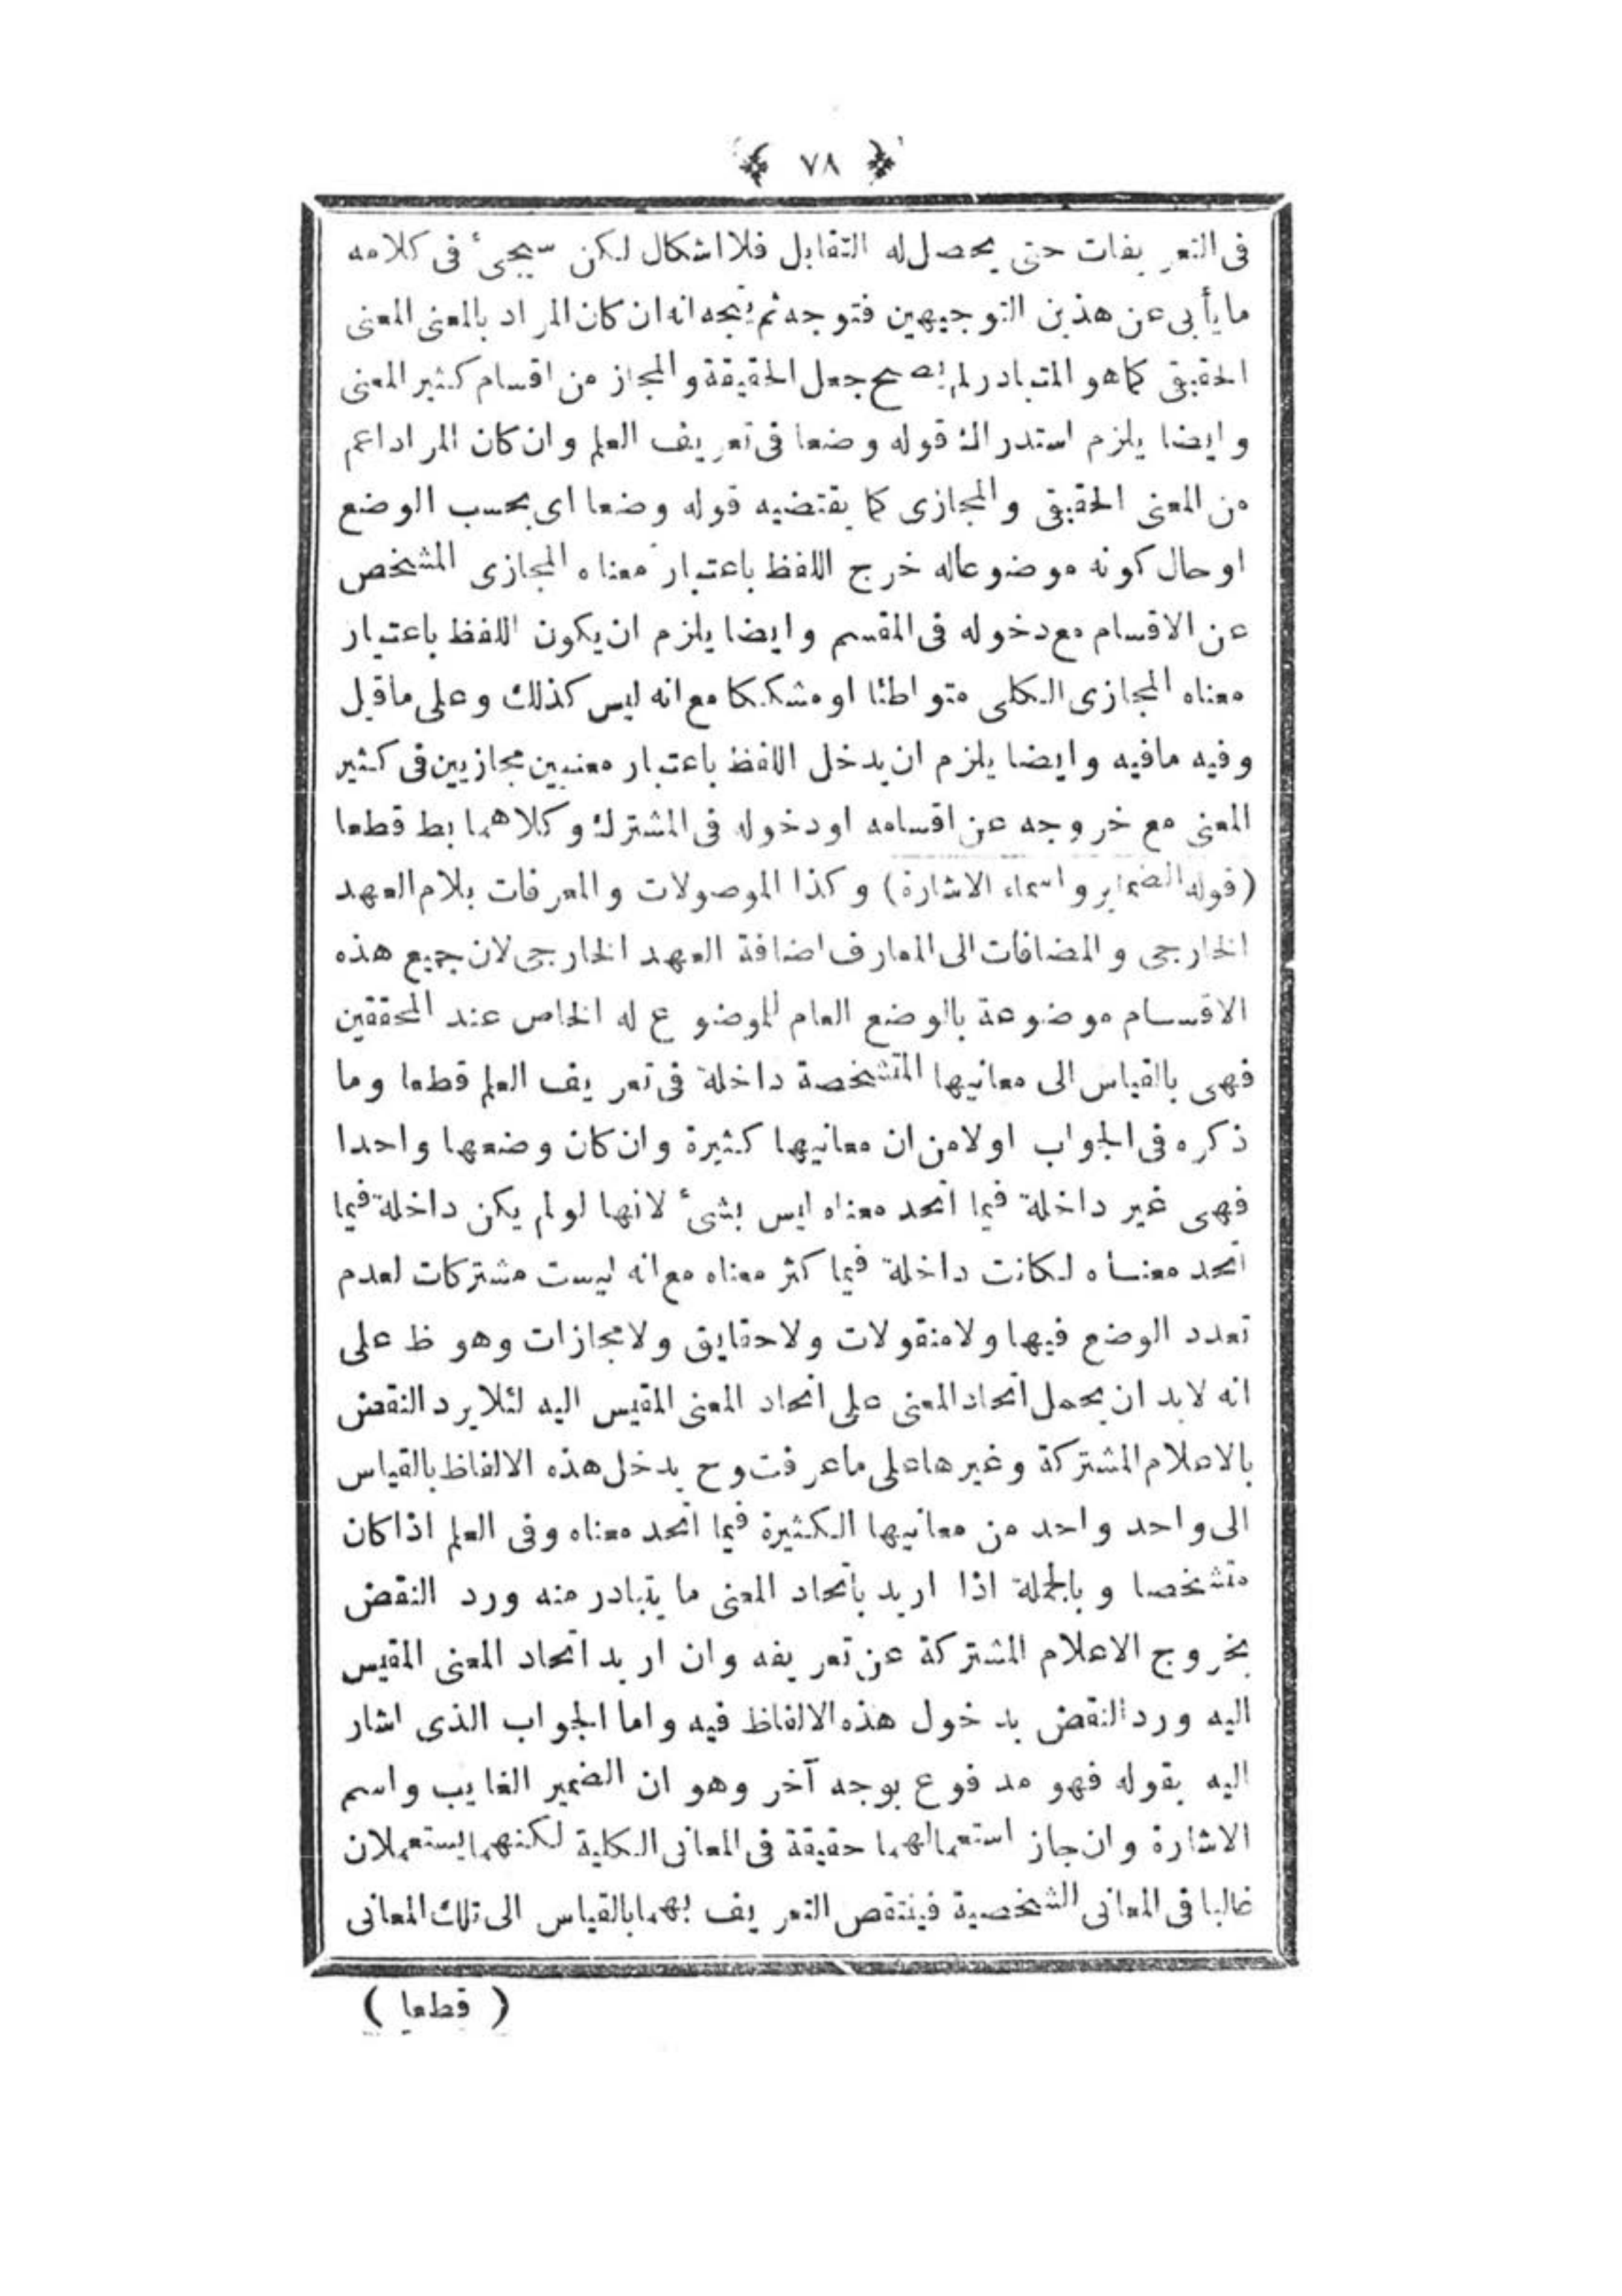 ﴿ ٧٨ ﴾
فى التعريفات حتى يحصل له التقابل فلا اشكال لكن سيجىء فى كلامه
ما يأبى عن هذين التوجيهين فتوجه ثم يتجه انه ان كان المراد بالمعنى المعنى
الحقيقى كما هو المتبادر لم يصح جعل الحقيقة والمجاز من اقسام كثير المعنى
وايضا يلزم استدراك قوله وضعا فى تعريف العلم وان كان المراد اعم
من المعنى الحقيقى والمجازى كما يقتضيه قوله وضعا اى بحسب الوضع
او حال كونه موضوعا له خرج اللفظ باعتبار معناه المجازى المشخص
عن الاقسام مع دخوله فى المقسم وايضا يلزم ان يكون اللفظ باعتبار
معناه المجازى الكلى متواطئا او مشككا مع انه ليس كذلك وعلى ما قيل
وفيه مافيه وايضا يلزم ان يدخل اللفظ باعتبار معنيين مجازيين فى كثير
المعنى مع خروجه عن اقسامه او دخوله فى المشترك وكلاهما بط قطعا
(قوله الضماير واسماء الاشارة) وكذا الموصولات والمعرفات بلام العهد
الخارجى والمضافات الى المعارف اضافة العهد الخارجى لان جميع هذه
الاقسام موضوعة بالوضع العام للموضوع له الخاص عند المحققين
فهى بالقياس الى معانيها المتشخصة داخلة فى تعريف العلم قطعا وما
ذكره فى الجواب اولا من ان معانيها كثيرة وان كان وضعها واحدا
فهى غير داخلة فيما اتحد معناه ليس بشىء لانها لو لم يكن داخلة فيما
اتحد معناه لكانت داخلة فيما كثر معناه مع انه ليست مشتركات لعدم
تعدد الوضع فيها ولا منقولات ولا حقايق ولا مجازات وهو ظ على
انه لابد ان يحمل اتحاد المعنى على اتحاد المعنى المقيس اليه لئلا يرد النقض
بالاعلام المشتركة وغيرها على ما عرفت وح يدخل هذه الالفاظ بالقياس
الى واحد واحد من معانيها الكثيرة فيما اتحد معناه وفى العلم اذا كان
متشخصا وبالجملة اذا اريد باتحاد المعنى ما يتبادر منه ورد النقض
بخروج الاعلام المشتركة عن تعريفه وان اريد اتحاد المعنى المقيس
اليه ورد النقض بدخول هذه الالفاظ فيه واما الجواب الذى اشار
اليه بقوله فهو مدفوع بوجه آخر وهو ان الضمير الغايب واسم
الاشارة وان جاز استعمالهما حقيقة فى المعانى الكلية لكنهما يستعملان
غالبا فى المعانى الشخصية فينتقص التعريف بهما بالقياس الى تلك المعانى
( قطعا )